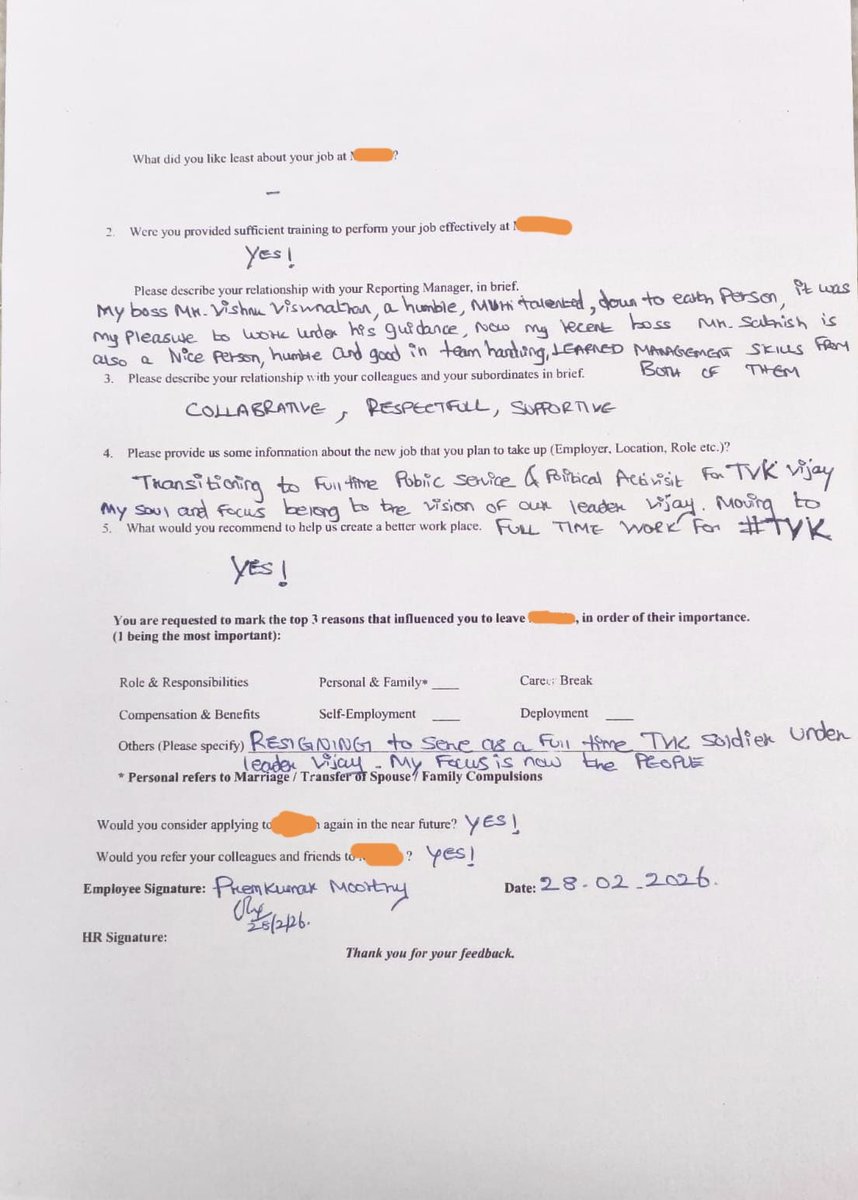 What did you like least about your job at ?
–
2. Were you provided sufficient training to perform your job effectively at
Yes!
Please describe your relationship with your Reporting Manager, in brief.
My boss Mr. Vishnu Viswnathan, a humble, Multi talented, down to earth Person, it was
my Pleasure to work under his guidance, Now my recent boss Mr. Sathish is
also a Nice Person, humble and good in team handling, LEARNED MANAGEMENT SKILLS FROM
BOTH OF THEM
3. Please describe your relationship with your colleagues and your subordinates in brief.
COLLABRATIVE, RESPECTFULL, SUPPORTIVE
4. Please provide us some information about the new job that you plan to take up (Employer, Location, Role etc.)?
Transitioning to Full time Public Service & Political Activist For TVK Vijay
My soul and focus belong to the vision of our leader Vijay. Moving to
5. What would you recommend to help us create a better work place. FULL TIME WORK For #TVK
YES!
You are requested to mark the top 3 reasons that influenced you to leave , in order of their importance.
(1 being the most important):
Role & Responsibilities Personal & Family* ____ Career Break
Compensation & Benefits Self-Employment ____ Deployment ____
Others (Please specify) RESIGNING to serve as a Full time TVK Soldier under
leader Vijay - My Focus is now the PEOPLE
* Personal refers to Marriage / Transfer of Spouse / Family Compulsions
Would you consider applying to again in the near future? YES!
Would you refer your colleagues and friends to ? Yes!
Employee Signature: Premkumar Moorthy Date: 28-02-2026.
28/2/26.
HR Signature:
Thank you for your feedback.